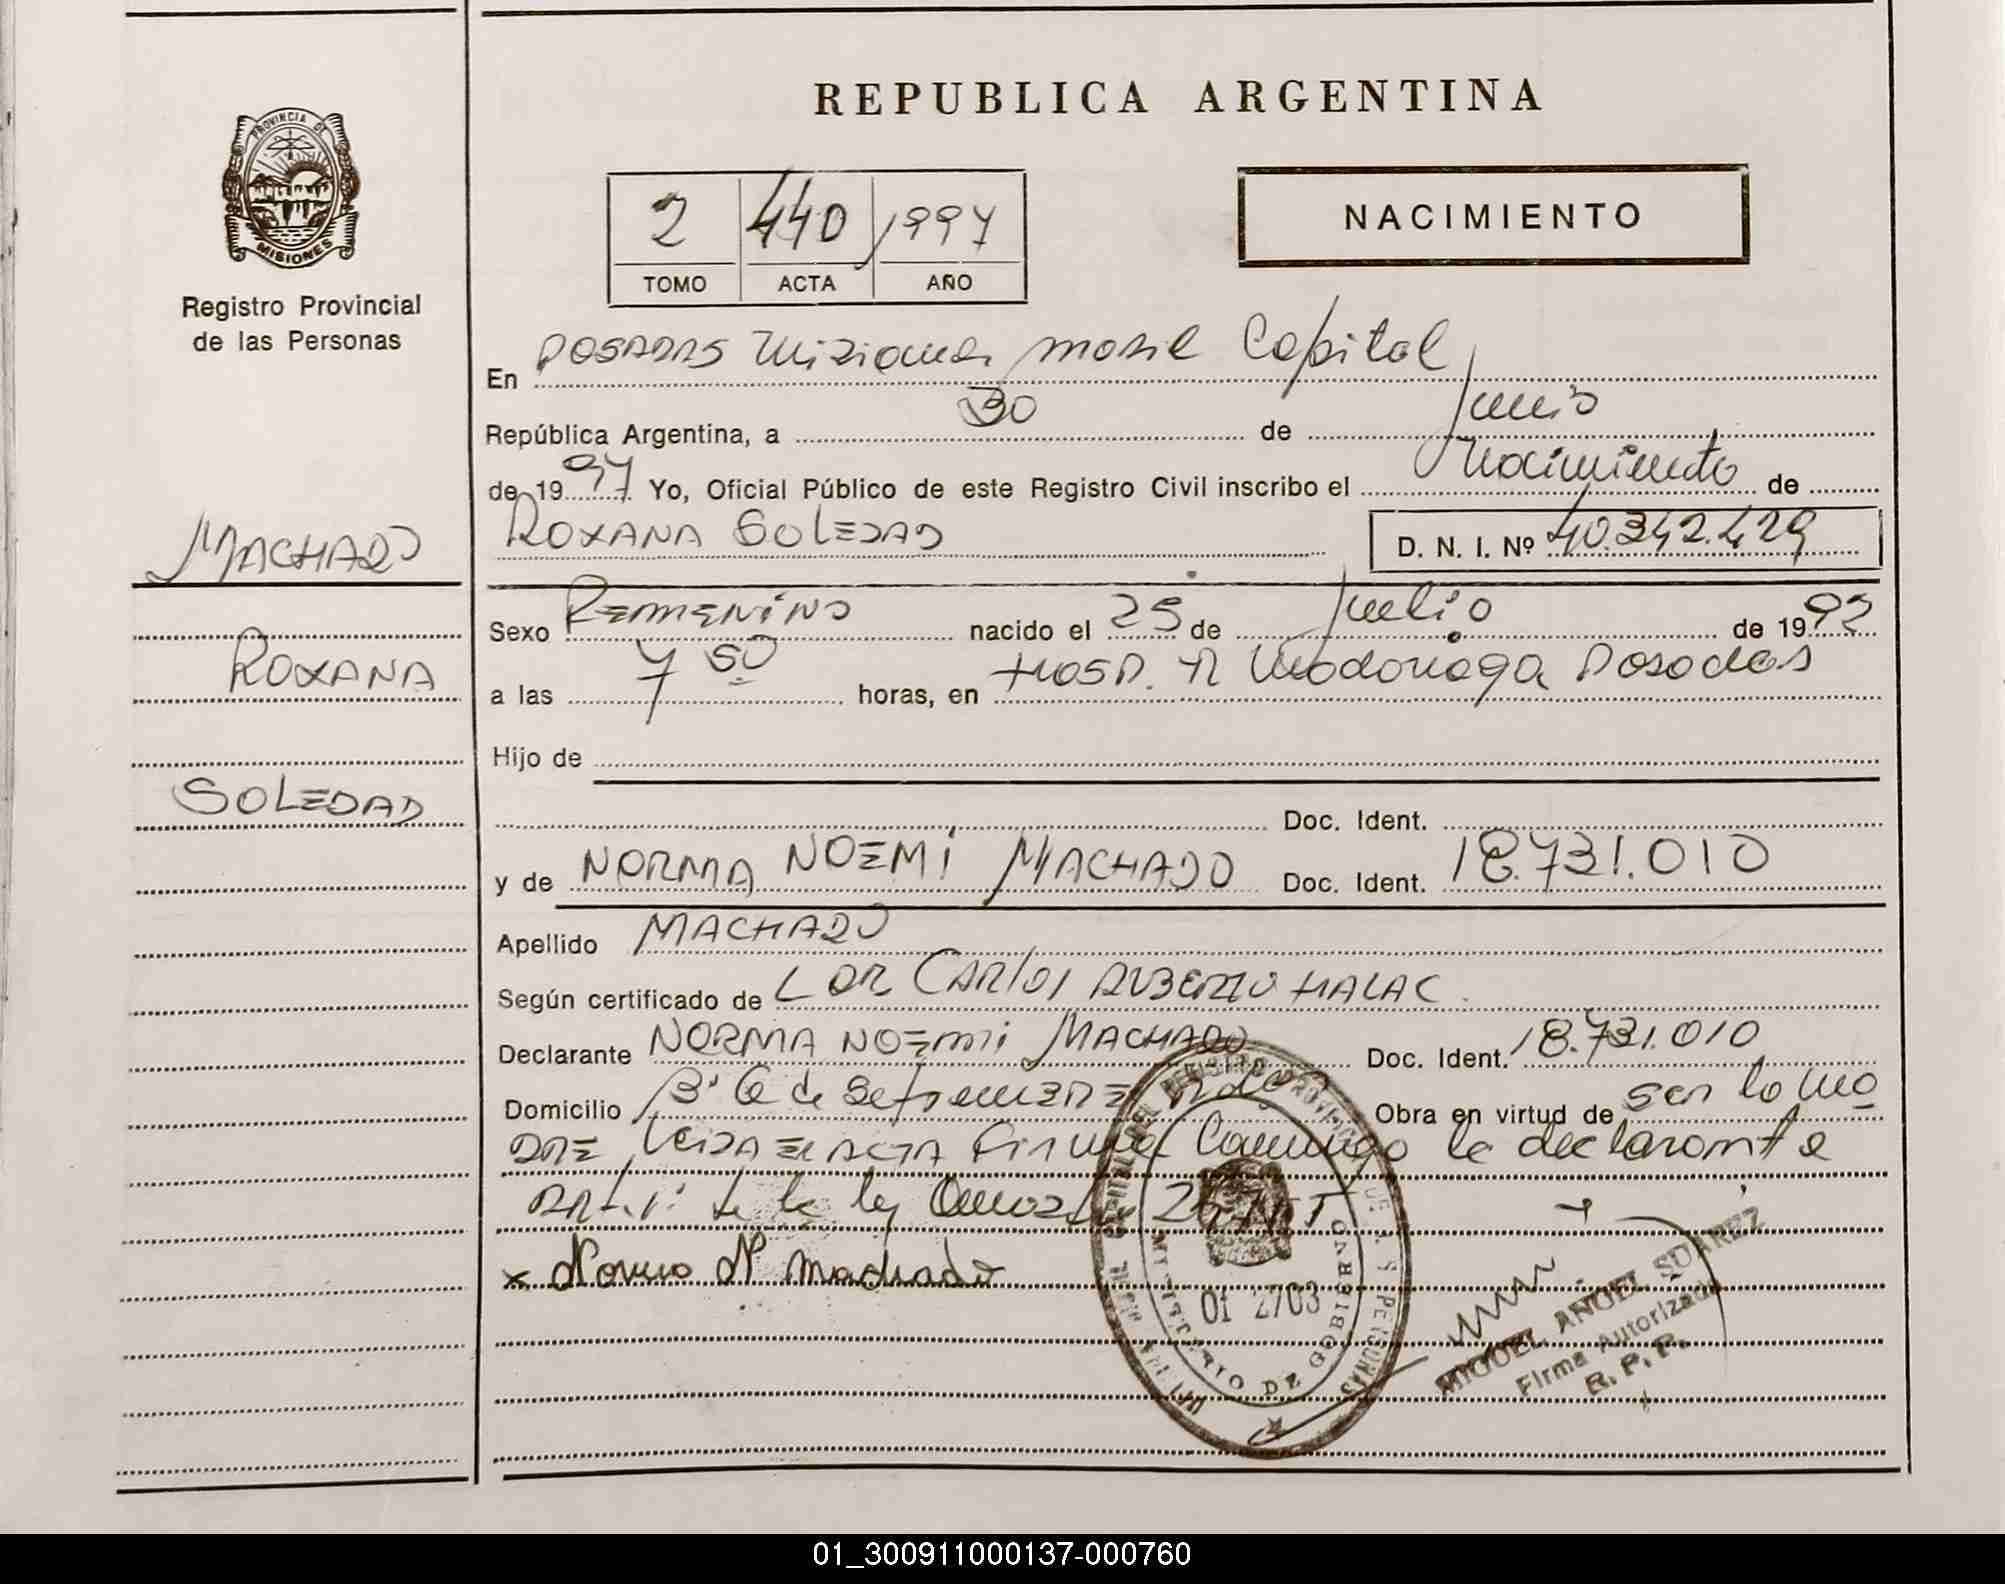 REPUBLICA ARGENTINA
PROVINCIA DE
MISIONES
Registro Provincial
de las Personas
2 440 1997
TOMO ACTA AÑO
NACIMIENTO
En POSADAS Misiones movil Capital
República Argentina, a 30 de Junio
de 1997 Yo, Oficial Público de este Registro Civil inscribo el Nacimiento de
ROXANA SOLEDAD
D. N. I. Nº 40.342.429
MACHADO
ROXANA
SOLEDAD
Sexo FEMENINO nacido el 25 de Julio de 1992
a las 7 50 horas, en HOSP. R Madariaga Posadas
Hijo de
Doc. Ident.
y de NORMA NOEMI MACHADO Doc. Ident. 18.731.010
Apellido MACHADO
Según certificado de DR CARLOS ALBERTO
Declarante NORMA NOEMI MACHADO Doc. Ident. 18.731.010
Domicilio Bº 6 de Setiembre Obra en virtud de ser la MA
DRE LEIDA EL ACTA Firma Conmigo la declarante
Art. 1º de la ley
x Norma N Machado
REGISTRO PROVINCIAL DE LAS PERSONAS
MINISTERIO DE GOBIERNO
MIGUEL ANGEL SUAREZ
Firma Autorizada
R. P. P.
01_300911000137-000760